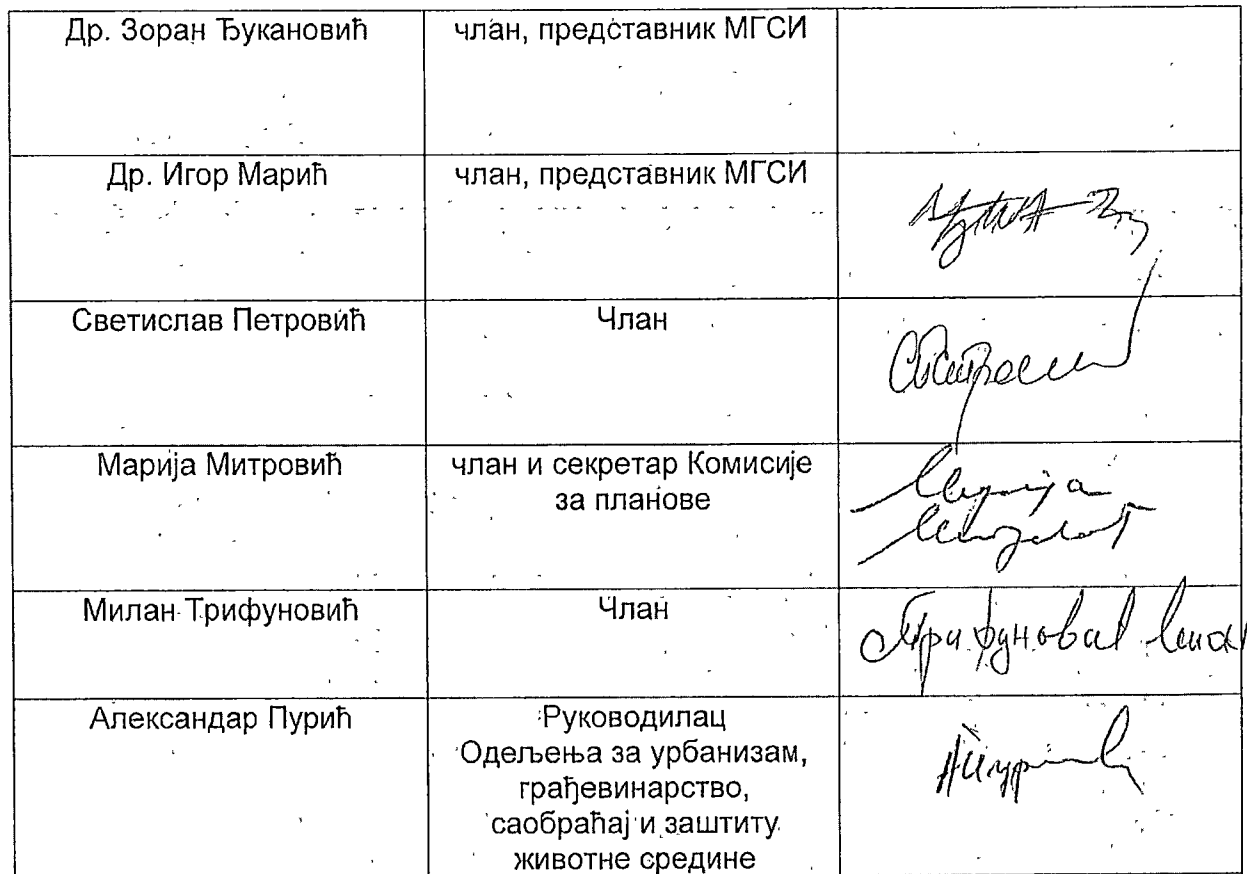 Др. Зоран Ђукановић
члан, представник МГСИ
Др. Игор Марић
члан, представник МГСИ
Светислав Петровић
Члан
Марија Митровић
члан и секретар Комисије
за планове
Марија
Милан Трифуновић
Члан
Александар Пурић
Руководилац
Одељења за урбанизам,
грађевинарство,
саобраћај и заштиту
животне средине